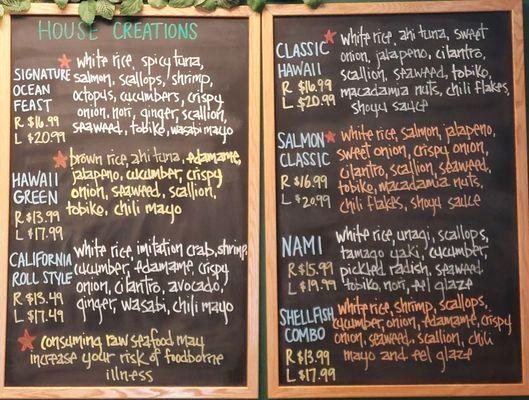 HOUSE CREATIONS
SIGNATURE
OCEAN
FEAST
R $16.99
L $20.99
white rice, spicy tuna,
salmon, scallops, shrimp,
octopus, cucumbers, crispy
onion, nori, ginger, scallion
seaweed, tobiko, wasabi mayo
HAWAII
GREEN
R $13.99
L $17.99
brown rice, ahi tuna, edamame,
jalapeno, cucumber, crispy
onion, seaweed, scallion,
tobiko, chili mayo
CALIFORNIA
ROLL STYLE
R $13.49
L $17.49
white rice, imitation crab, shrimp,
cucumber, edamame, crispy
onion, cilantro, avocado,
ginger, wasabi, chili mayo
consuming raw seafood may
increase your risk of foodborne
illness
CLASSIC
HAWAII
R $16.99
L $20.99
white rice, ahi tuna, sweet
onion, jalapeno, cilantro,
scallion, seaweed, tobiko,
macadamia nuts, chili flakes,
shoyu sauce
SALMON
CLASSIC
R $16.99
L $20.99
white rice, salmon, jalapeno,
sweet onion, crispy onion,
cilantro, scallion, seaweed,
tobiko, macadamia nuts,
chili flakes, shoyu sauce
NAMI
R $15.99
L $19.99
white rice, unagi, scallops,
tamago yaki, cucumber,
pickled radish, seaweed
tobiko, nori, eel glaze
SHELLFISH
COMBO
R $13.99
L $17.99
white rice, shrimp, scallops,
cucumber, onion, edamame, crispy
onion, seaweed, scallion, chili
mayo and eel glaze